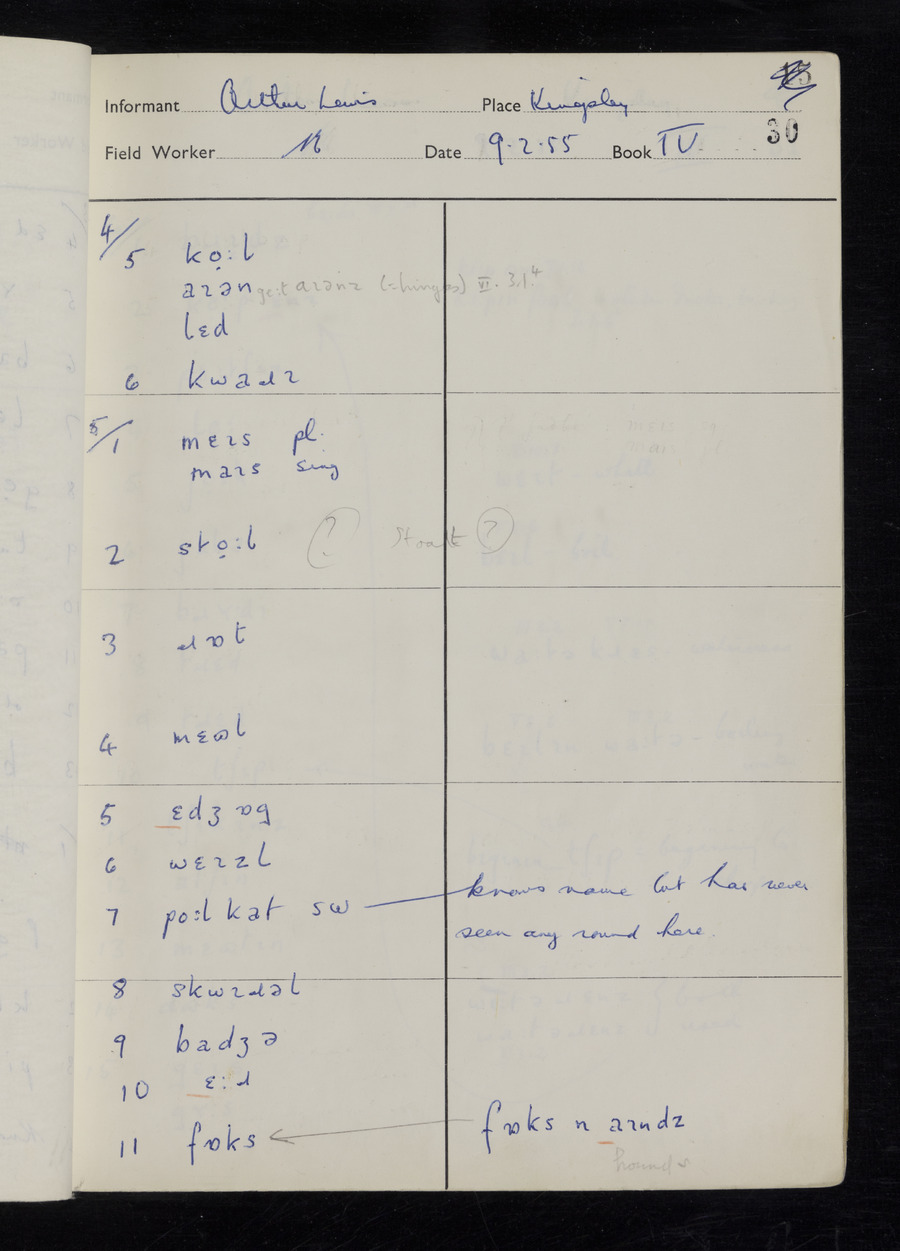 Informant Arthur Lewis Place Kingsley
Field Worker Date 9.2.55 Book IV 30
4/5 kọ:l
aɪən ge:t aɪənz (= hinges) VI. 3.1.4
lɛd
6 kwaɹɪz
5/1 mɛɪs pl.
maɪs sing
2 stọ:l (?) stoat (?)
3 ɹɒt
4 mɛɷl
5 ɛdʒɒg
6 wɛɪzl
7 po:lkat sw knows name but has never
seen any round here.
8 skwɪɹəl
9 badʒə
10 ɛ:ɹ
11 fɒks fɒks n aɪndz
hounds